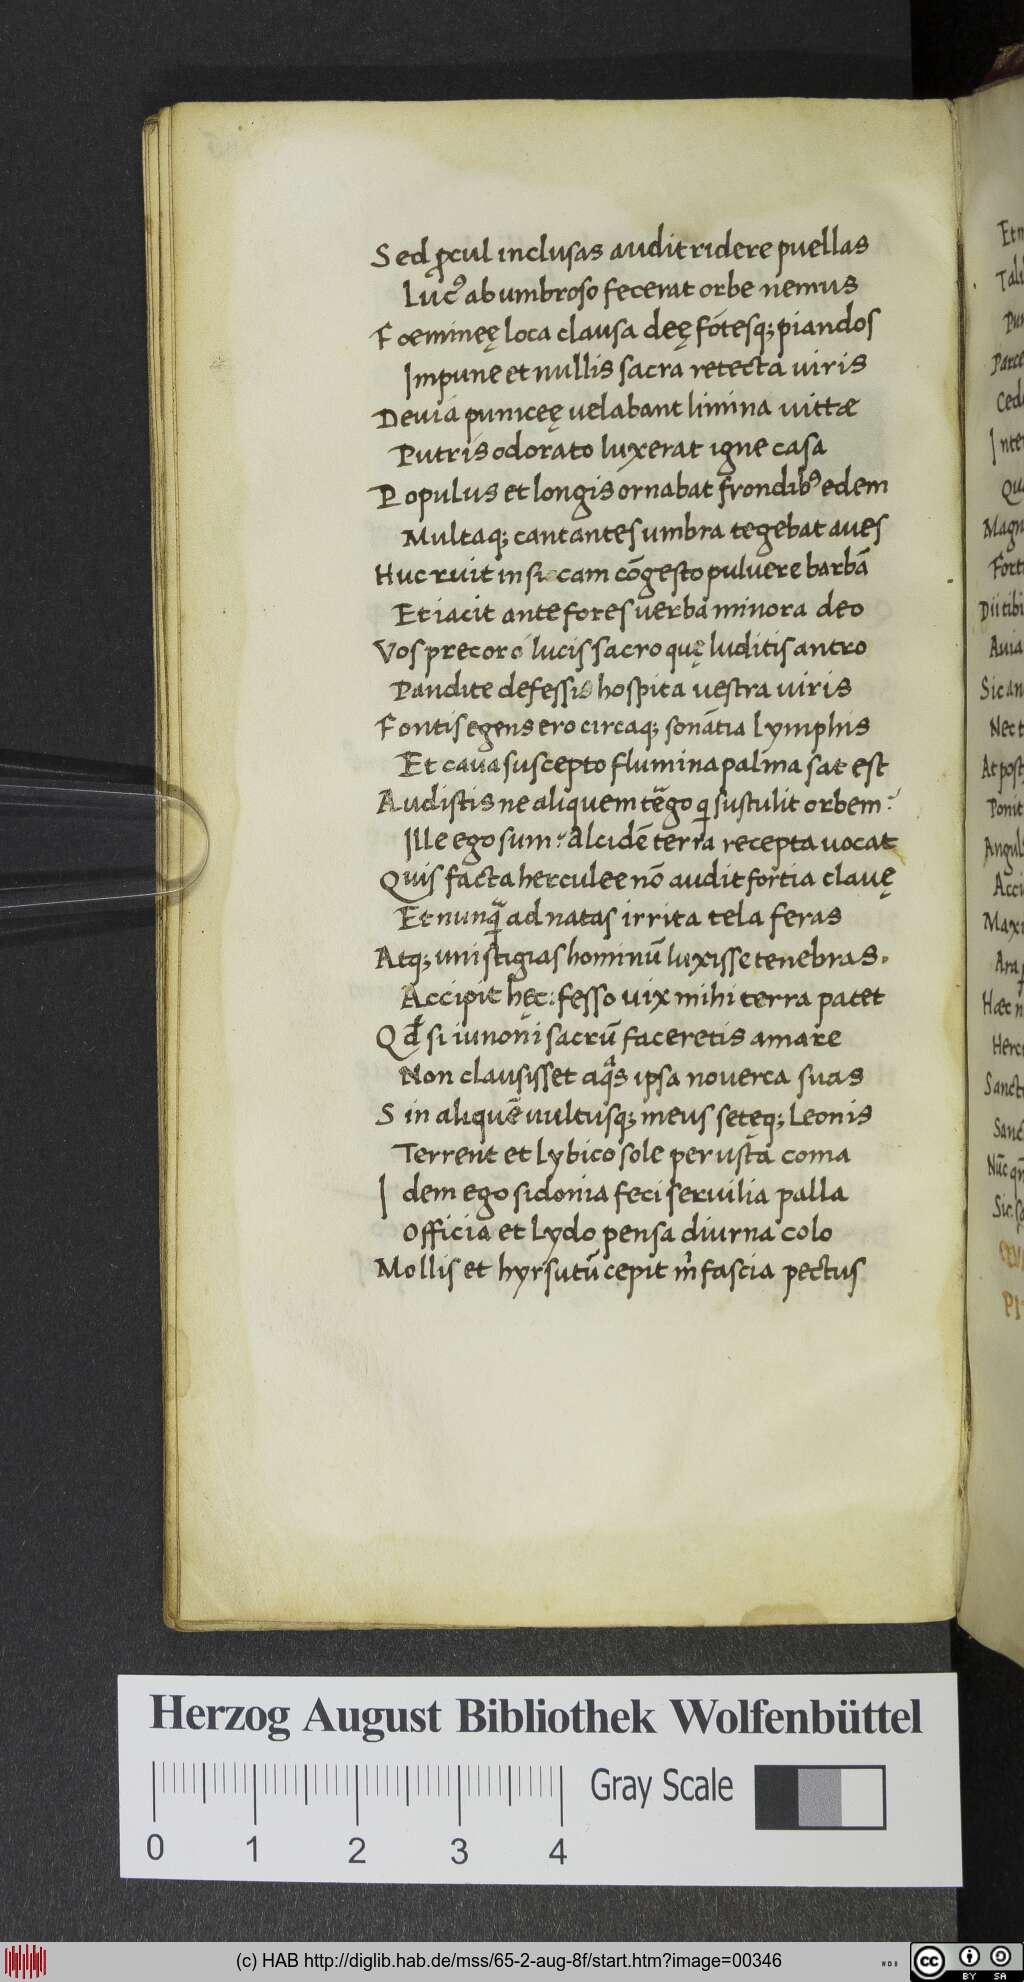 Sed ꝓcul inclusas audit ridere puellas
Lucꝰ ab umbroso fecerat orbe nemus
Foemineę loca clausa deę fōtesq; piandos
Impune et nullis sacra retecta uiris
Deuia puniceę uelabant limina uittæ
Putris odorato luxerat igne casa
Populus et longis ornabat frondibꝰ edem
Multaq; cantantes umbra tegebat aues
Huc ruit in siccam cōgesto puluere barbā
Et iacit ante fores uerba minora deo
Vos precor o lucis sacro quę luditis antro
Pandite defessis hospita uestra uiris
Fontis egens ero circaq; sonātia lymphis
Et caua suscepto flumina palma sat est
Audistis ne aliquem tēgo q sustulit orbem?
Ille ego sum: alcidē terra recepta uocat
Quis facta herculee nō audit fortia clauę
Et nunꝗ ad natas irrita tela feras
Atq; uni stigias hominū luxisse tenebras.
Accipit hęc: fesso uix mihi terra patet
Qd́ si iunoni sacrū faceretis amare
Non clausisset aqᵃs ipsa nouerca suas
Sin aliquē uultusq; meus setęq; Leonis
Terrent et Lybico sole perusta coma
Idem ego sidonia feci seruilia palla
Officia et Lydo pensa diurna colo
Mollis et hyrsutū cepit m̓ fascia pectus
Parce
Magn
Herzog August Bibliothek Wolfenbüttel
Gray Scale
0 1 2 3 4
(c) HAB http://diglib.hab.de/mss/65-2-aug-8f/start.htm?image=00346
cc BY SA